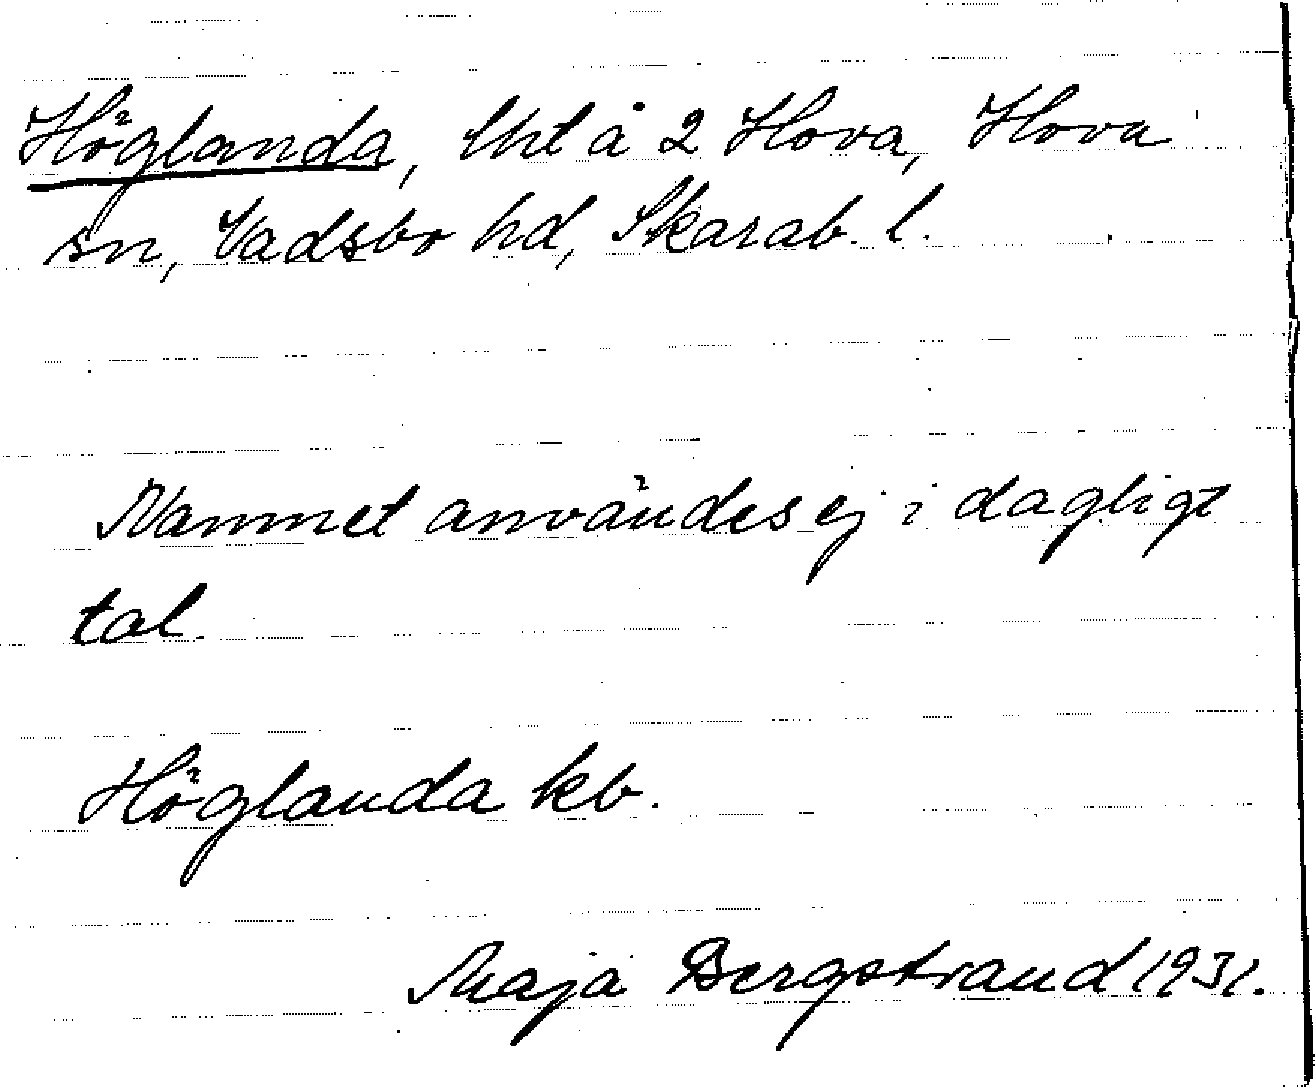 Höglanda, lht å 2 Hova, Hova
sn, Vadsbo hd, Skarab. l.
Namnet användes ej i dagligt
tal.
Höglanda kb.
Maja Bergstrand 1931.